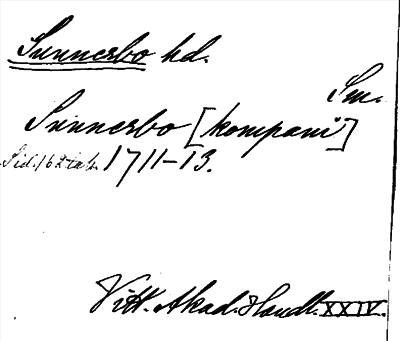 Sunnerbo hd.
Sm.
Sunnerbo [kompani]
1711-13.
Vitt. Akad. Handl. XXIV.